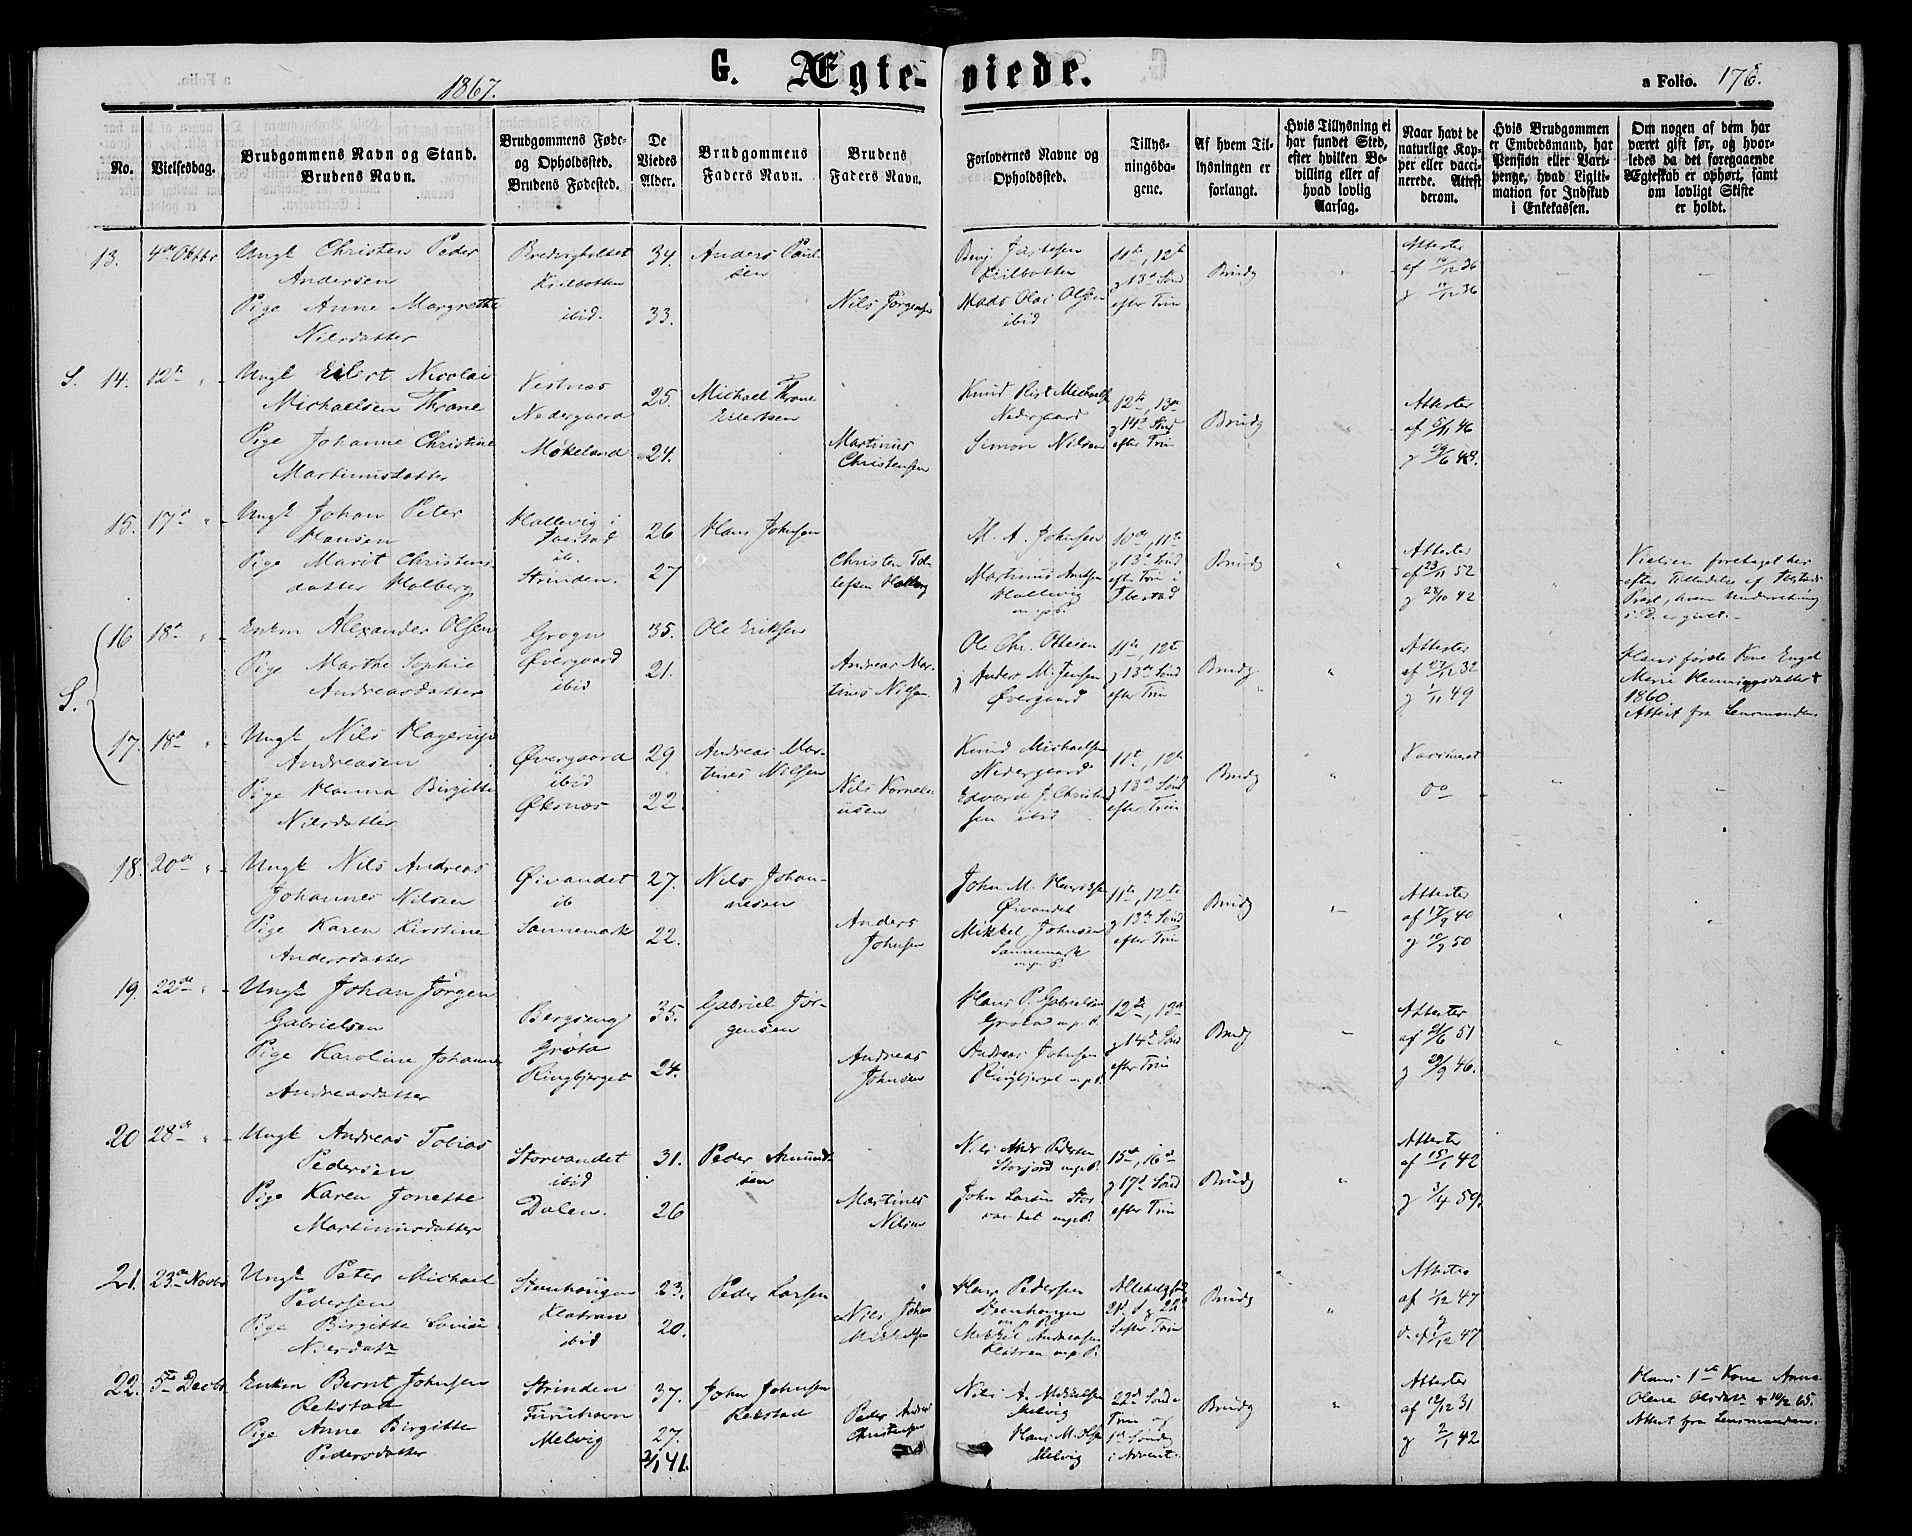 1867.
G. Ægte-viede.
a Folio. 176.
No.
Vielsesdag.
Brudgommens Navn og Stand.
Brudens Navn.
Brudgommens Føde-
og Opholdssted.
Brudens Fødested.
De
Viedes
Alder.
Brudgommens
Faders Navn.
Brudens
Faders Navn.
Forlovernes Navne og
Opholdssted.
Tillys-
ningsda-
gene.
Af hvem Til-
lysningen er
forlangt.
Hvis Tillysning ei
har fundet Sted,
efter hvilken Be-
villing eller af
hvad lovlig
Aarsag.
Naar havt de
naturlige Kop-
per eller vacci-
nerede. Attest
derom.
Hvis Brudgommen
er Embedsmand, har
Pension eller Vart-
penge, hvad Ligiti-
mation for Indskud
i Enkekassen.
Om nogen af dem har
været gift før, og hvor-
ledes da det foregaaende
Ægteskab er ophørt, samt
om lovligt Skifte
er holdt.
13. 4de Oktbr
Ungk Christen Peder
Andersen
Pige Anne Margrethe
Nilsdatter
ibid.
34.
33.
Anders Paul-
sen
Nils Jørgensen
Mads Olai Olsen
ibid
11te, 12te
g 13de Sønd
efter Trin
Brudg
Attester
af 14/12 36
g 14/12 36
S. 14. 12te "
Ungk Eilert Nicolai
Michaelsen Throne
Pige Johanne Christine
Martinusdatter
Vestnes
Nedergaard
Møkeland
25.
24.
Michael Throne
Eilertsen
Martinus
Christensen
Nedergaard
Simon Nilsen
12te, 13de
g 14de Sønd
efter Trin
Brudg
Attester
15. 17de "
Ungk Johan Peter
Hansen
Pige Marit Christens-
datter Holberg
Hallevig i
ib.
Strinden.
26
27
Hans Johnsen
Christen Tol-
lefsen Holberg
M. A. Johnsen
Hallevig
m.p.P.
10de, 11te
g 13de Sønd
efter Trin i
Ibestad
Brudg
Attester
af 23/11 52
g 28/10 42
Vielsen foretaget her
efter Tilladelse af Ibestads
Præst, hvem Underretning
i D. er givet.
16 18de "
Enkm Alexander Olsen
Pige Marthe Sophie
Andreasdatter
Grogn
Øvergaard
ibid
35.
21.
Ole Eriksen
Andreas Mar-
tinus Nilsen
Ole Chr. Ottesen
g Anders M. Jensen
Øvergaard
11te, 12te
g 13de Sønd
efter Trin
Brudg
Attester
af 27/12 32
g 1/11 49
Hans første Kone Engel
Marie Henningsdatter †
1860
Attest fra Lensmanden.
S.
17. 18de "
Ungk Nils Hagerup
Andreasen
Pige Hanna Birgitte
Nilsdatter
Øvergaard
ibid
Øksnes
29
22
Andreas Mar-
tinus Nilsen
Nils Korneli-
usen
Knud Michaelsen
Nedergaard
Edvard J. Christen-
sen ibid
11te, 12te
g 13de Sønd
efter Trin
Brudg
Vaccineret
Do
18. 20de "
Ungk Nils Andreas
Johannes Nilsen
Pige Karen Kirstine
Andersdatter
Øivandet
ib
Sannemark
27.
22.
Nils Johan-
nesen
Anders
Johnsen
Øivandet
Mikkel Johnsen
Sannemark
m.p.P.
11te, 12te
g 13de Sønd
efter Trin
Brudg
Attester
af 17/9 40
g 10/9 50
19. 22de "
Ungk Johan Jørgen
Gabrielsen
Pige Karoline Johanne
Andreasdatter
Bergseng
Grøta
Ringbjerget
35.
24.
Gabriel Jør-
gensen
Andreas
Johnsen
Hans P. Gabrielsen
Andreas Johnsen
Ringbjerget m.p.P.
12te, 13de
g 14de Sønd
efter Trin
Brudg
Attester
g 29/9 46.
20 28de "
Ungk Andreas Tobias
Pedersen
Pige Karen Jonette
Martinusdatter
Storvandet
ibid
Dalen.
31.
26
Peder Amund-
sen
Martines
Nilsen
Nils Andr Pedersen
Storjord m.p.P.
John Larsen Stor-
vandet m.p.P.
15de, 16de
g 17de Sønd
efter Trin
Brudg
Attester
af 15/1 42
g 3/4 59.
21. 23de Novbr
Ungk Peter Michael
Pedersen
Pige Birgitte Lovise
Nilsdatr
Steenhaugen
Klatran
ibid
23.
20.
Peder Larsen
Nils Johan
Mikkelsen
Hans Pedersen
Steenhaugen
m.p.P.
Mikkel Andreasen
Klatran m.p.P.
21de S g 22de
S efter Trin
Brudg
Attester
af 1/12 47
g
d. af 1/12 47
22. 5te Decbr.
Enkm Bernt Johnsen
Rekstad
Pige Anne Birgitte
Pedersdatter
Strinden
Furuhavn
Melvig
37.
27.
2/1 41.
John Johnsen
Rekstad
Peder Andreas
Christensen
Nils A. Mikkelsen
Melvig
Melvig
22de Sønd e
Trin og
1ste Søndag
i Advent
Brudg
Attester
af 10/12 31
g 2/1 42
Hans 1ste Kone Anne
Olene Olsdatr † 10/2 65.
Attest fra Lensmanden.